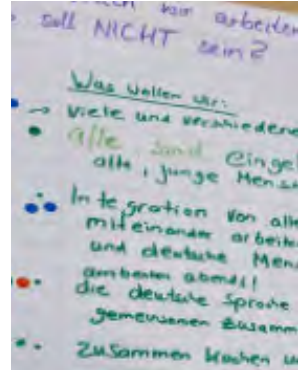 wir arbeiten
soll NICHT sein?
Was wollen wir:
→ viele und verschiedene
alle sind eingel
alte, junge Mensc
Integration von alle
miteinander arbeite
und deutsche Men
ambesten abends!!
die deutsche Sprache
gemeinsamen Zusamm
Zusammen kochen u